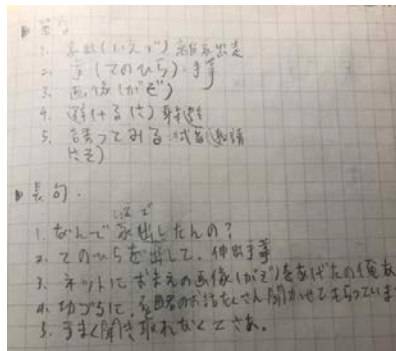 ▶ 單句
1. 家出(いえで) 離家出走
2. 手(てのひら)・手掌
3. 画像(がぞ)
4. 避ける(さ)
5. 誘ってみる 試著邀請
(さそ)
▶ 長句.
1. なんで家出したんの?
2. てのひらを出して. 伸出手掌
3. ネットにおまえの画像(がぞ)をあげたの俺
4. のお話をくさん聞かせてもらっていま
5. うまく聞き取れなくてさあ。